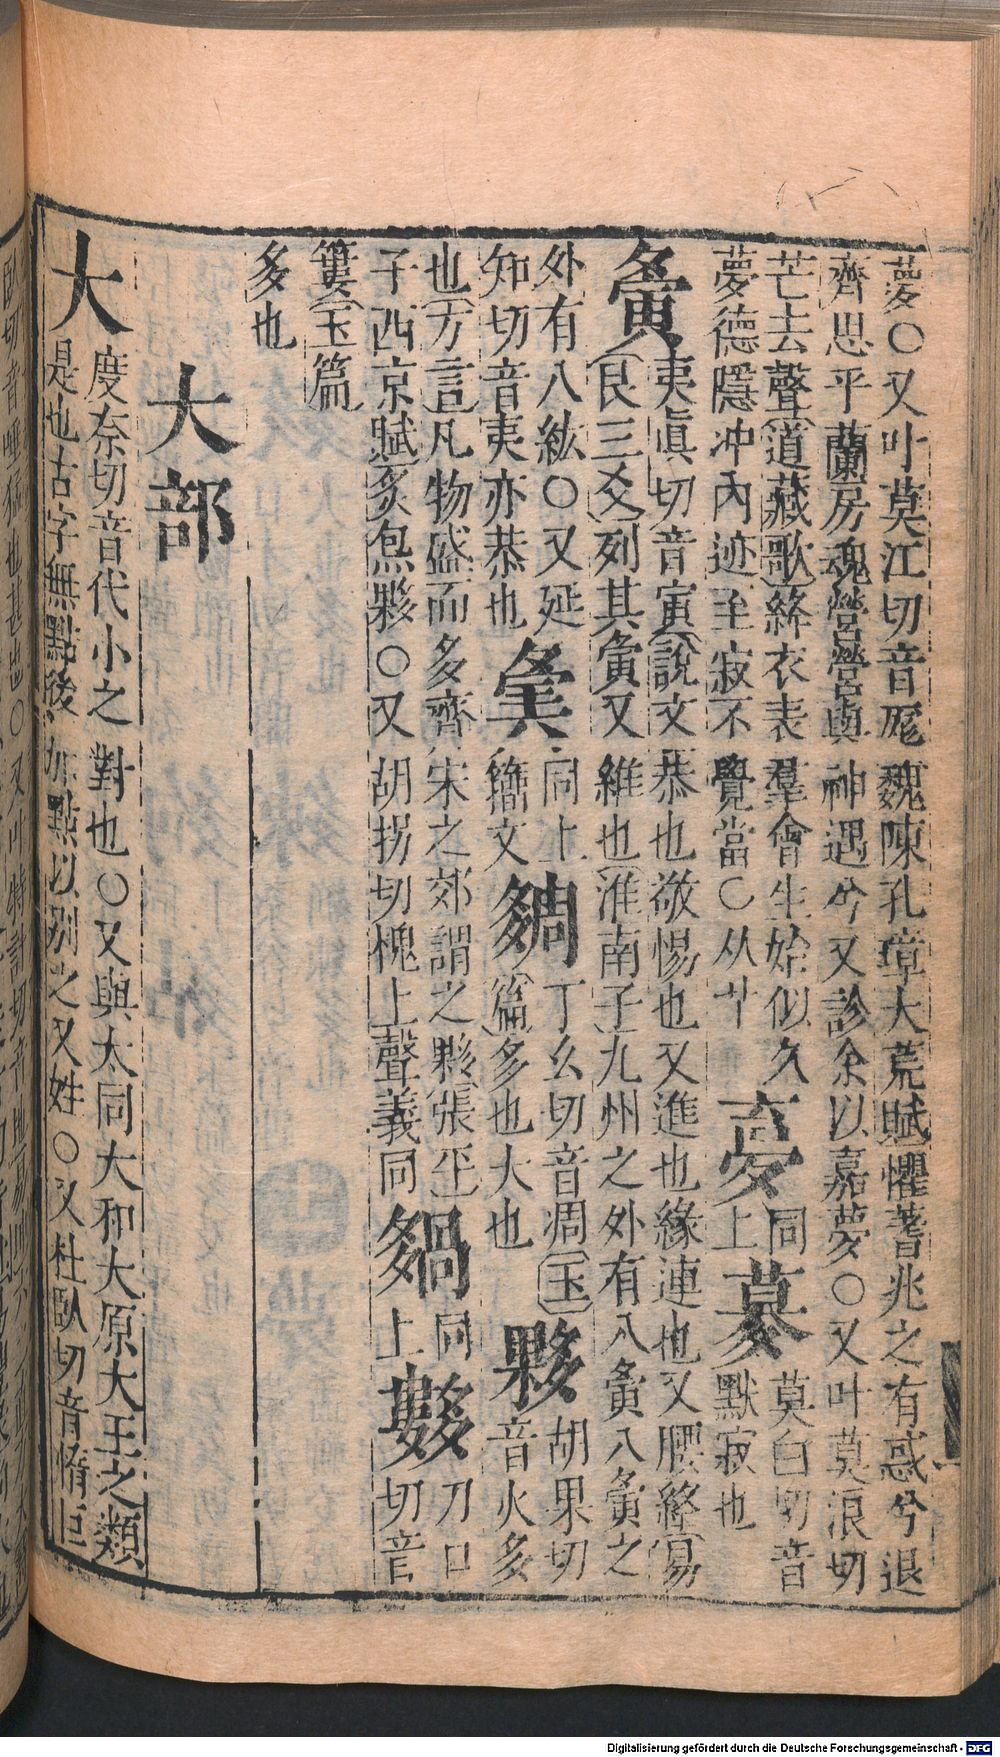 夢○又叶莫江切音厖魏陳孔璋大荒賦懼蓍兆之有惑兮退
齊思平蘭房魂營營與神遇兮又診余以嘉夢○又叶莫浪切
芒去聲道藏歌絳衣表羣會生始似久
夢德隱冲內迹至寂不覺當○从艹
同
上
莫白切音
默寂也
夤
夷眞切音寅說文恭也敬惕也又進也緣連也又腰絡易
艮三爻列其夤又維也淮南子九州之外有八夤八夤之
外有八紘○又延
知切音夷亦恭也
同上
籀文
丁幺切音凋玉
篇多也大也
夥
胡果切
音火多
也方言凡物盛而多齊宋之郊謂之夥張平
子西京賦炙炰夥○又胡拐切槐上聲義同
同
上
刀口
切音
簍玉篇
多也
大部
大
度奈切音代小之對也○又與太同大和大原大王之類
是也古字無點後加點以別之又姓○又杜臥切音惰巨
Digitalisierung gefördert durch die Deutsche Forschungsgemeinschaft - DFG